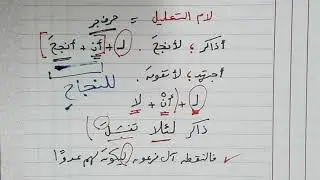 لام التعليل = حرف جر
أذاكر ؛ لأنجحَ . لـ + [أن + أنجحَ]
للنجاح
اجتهد ؛ لأتفوقَ .
لـ + (أنْ + لا)
ذاكر لئلا تفشلَ)
✓ فالتقطه آل فرعون ليكونَ لهم عدوًا